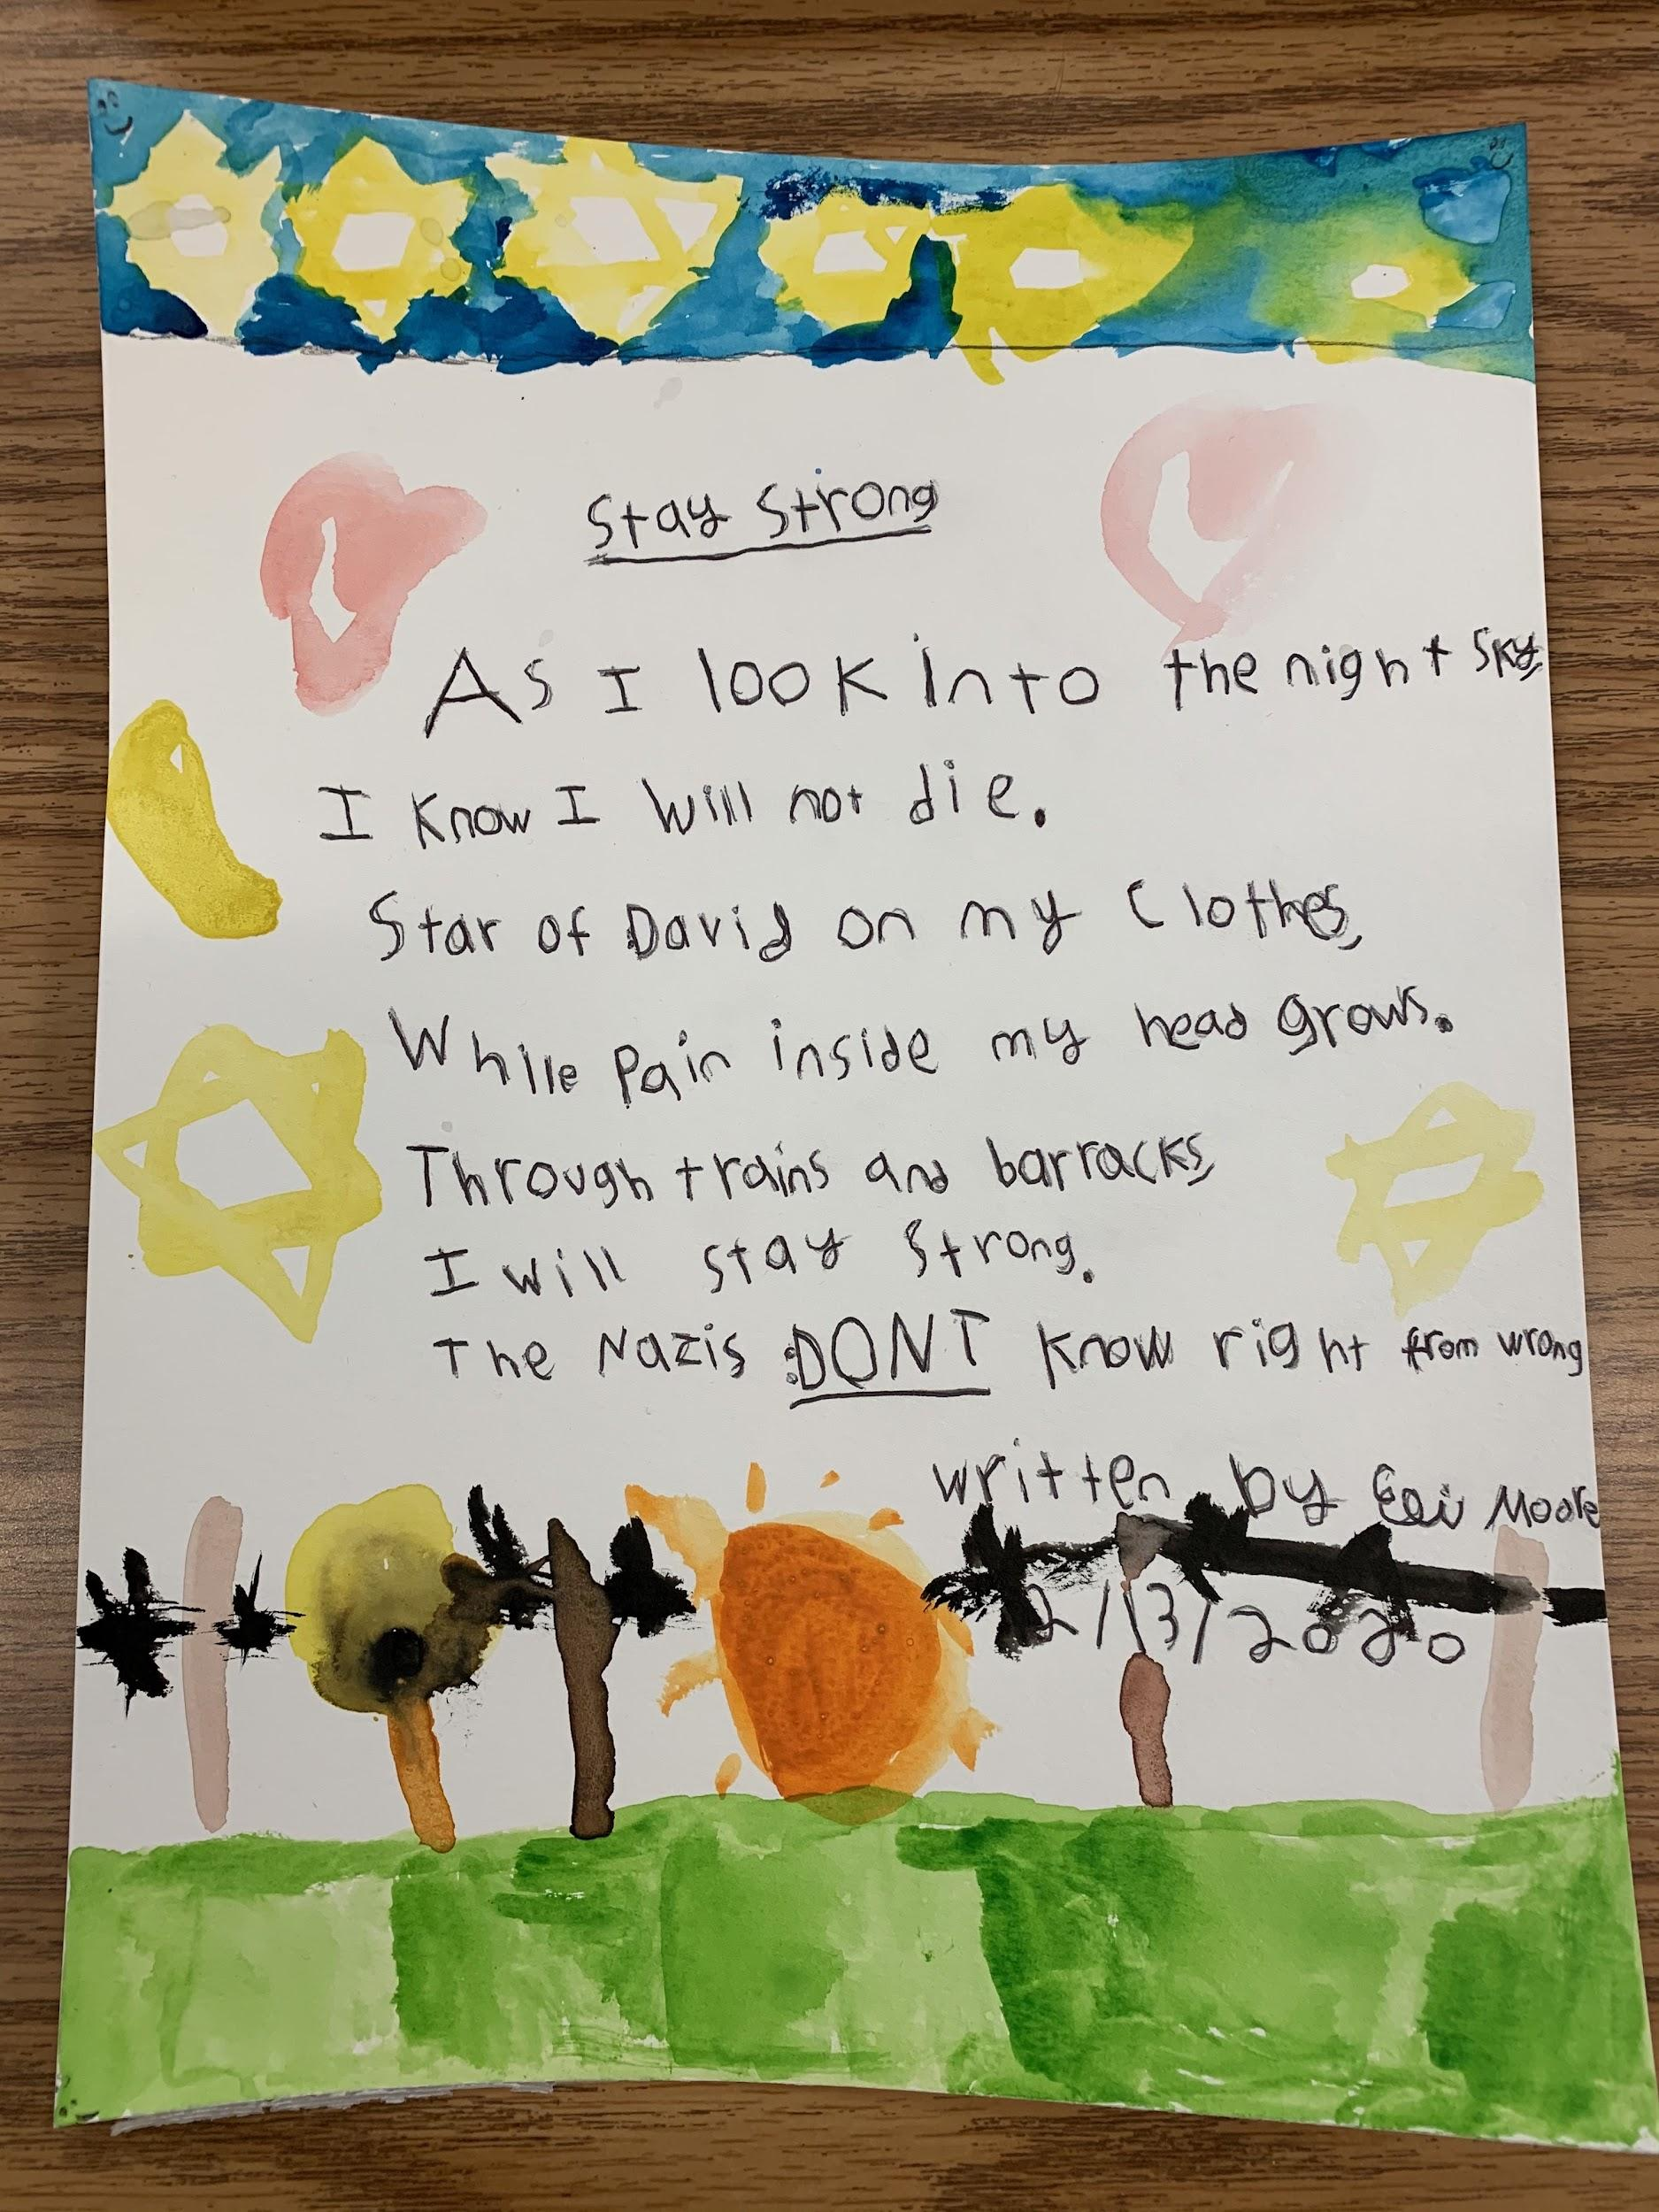 Stay Strong
As I look into the night sky
I know I will not die.
Star of David on my clothes,
While Pain inside my head grows.
Through trains and barracks,
I will stay strong.
The Nazis DONT know right from wrong
written by Moore
2/13/2020